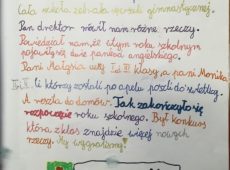 Cała szkoła zebrała się w sali gimnastycznej.
Pan dyrektor mówił nam różne rzeczy.
Powiedział nam, że w tym roku szkolnym
pojawi się pani z angielskiego.
Pani Małgosia uczy I i III klasy, a pani Monika
II i V. Ci którzy zostali po apelu poszli do świetlicy.
A reszta do domów. Tak zakończyło się
rozpoczęcie roku szkolnego. Był konkurs
która z klas znajdzie więcej nowych
rzeczy. My wygraliśmy!